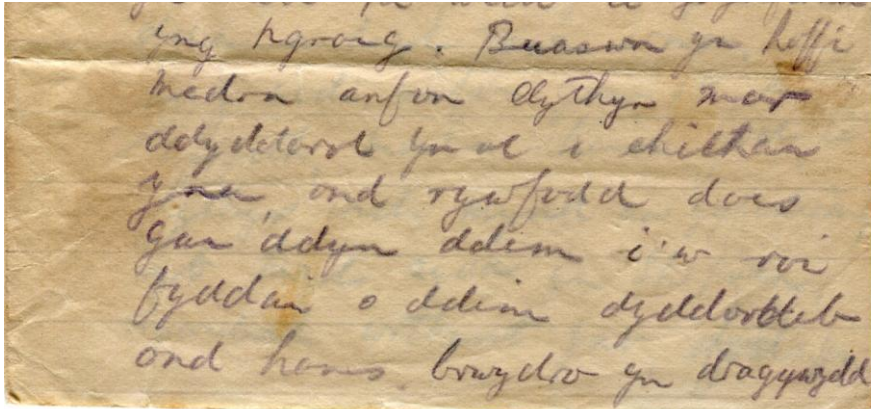 yng Ngroeg. Buaswn yn hoffi
medru anfon llythyr mor
ddyddorol yn ol i chwithau
yna ond rywfodd does
gan ddyn ddim i'w roi
fyddai o ddim dyddordeb
ond hanes brwydro yn dragywydd